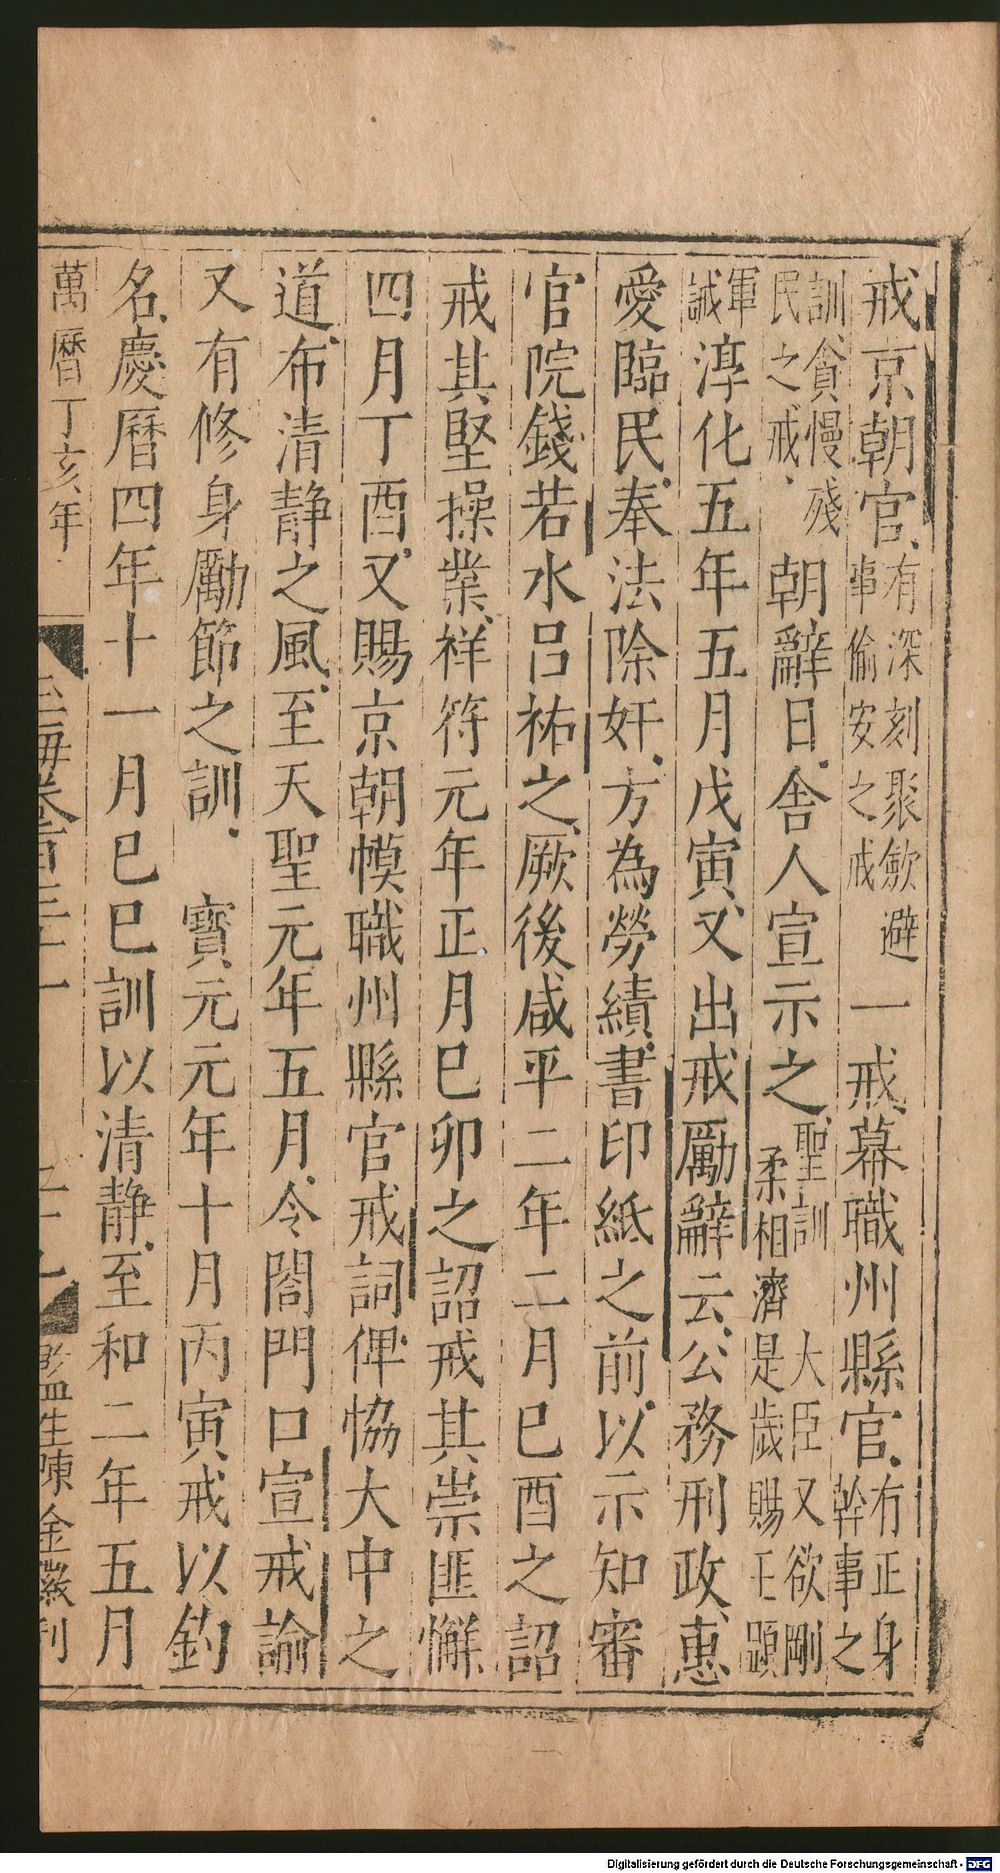 戒京朝官有深刻聚歛避事偷安之戒一戒幕職州縣官有正身幹事之
訓貪慢殘民之戒朝辭日舍人宣示之聖訓大臣又欲剛柔相濟是歲賜王顕
軍誡淳化五年五月戊寅又出戒勵辭云公務刑政惠
愛臨民奉法除奸方為勞績書印紙之前以示知審
官院錢若水呂祐之厥後咸平二年二月巳酉之詔
戒其堅操業祥符元年正月巳卯之詔戒其崇匪懈
四月丁酉又賜京朝幙職州縣官戒詞俾恊大中之
道布清静之風至天聖元年五月令閤門口宣戒諭
又有修身勵節之訓寳元元年十月丙寅戒以釣
名慶曆四年十一月巳巳訓以清静至和二年五月
萬曆丁亥年 玉海卷百三十一 監生陳金徽刊
Digitalisierung gefördert durch die Deutsche Forschungsgemeinschaft - DFG